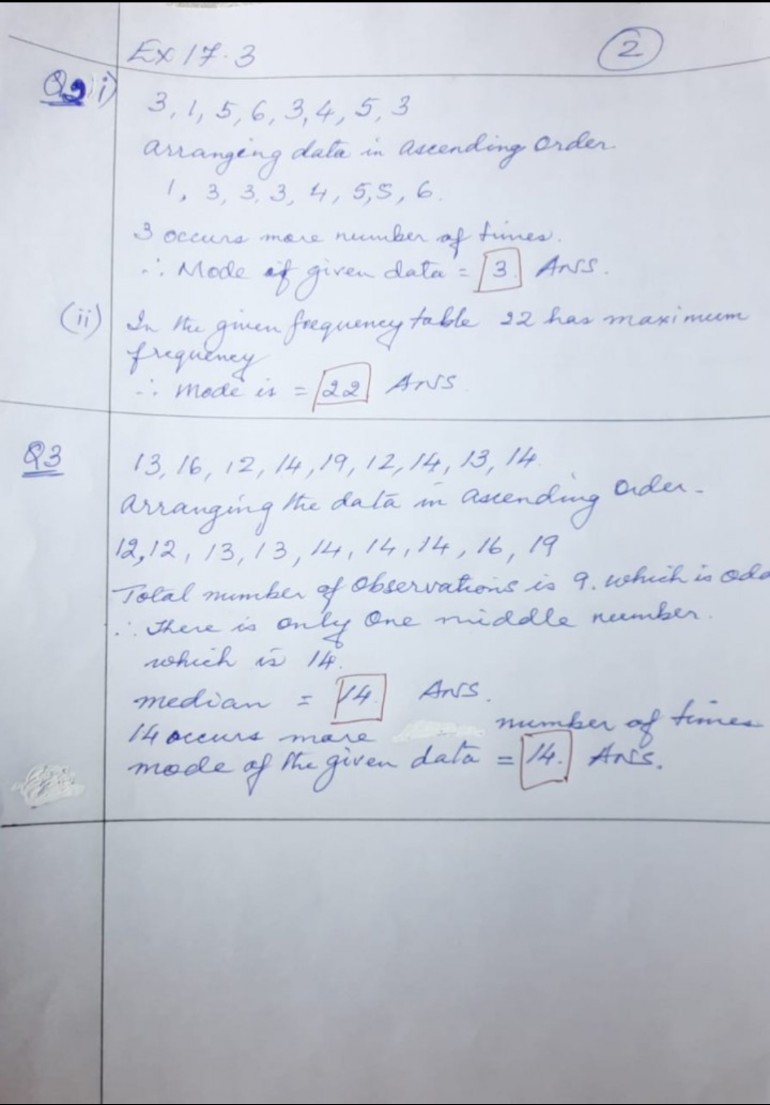 Ex 17.3
2
Q2 i)
3, 1, 5, 6, 3, 4, 5, 3
arranging data in ascending order.
1, 3, 3, 3, 4, 5, 5, 6.
3 occurs more number of times.
∴ Mode of given data = 3. Ans.
(ii) In the given frequency table 22 has maximum
frequency
∴ mode is = 22 Ans.
Q3 13, 16, 12, 14, 19, 12, 14, 13, 14.
arranging the data in ascending order.
12, 12, 13, 13, 14, 14, 14, 16, 19
Total number of observations is 9. which is odd
∴ There is only one middle number.
which is 14.
median = 14. Ans.
14 occurs more number of times
mode of the given data = 14. Ans.